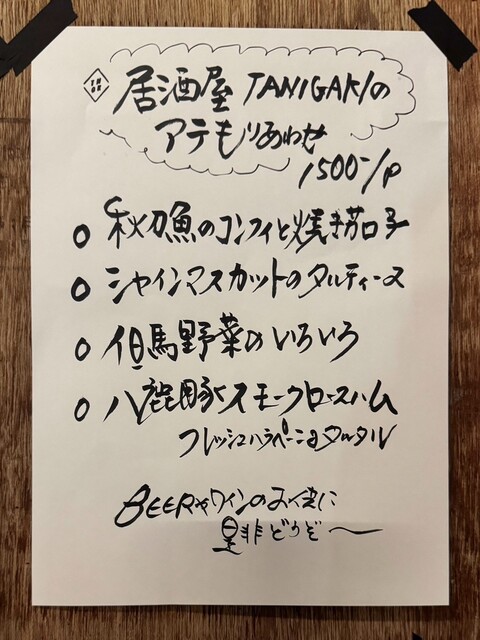 居酒屋 TANIGAKIの
アテもりあわせ
1500-/P
秋刀魚のコンフィと焼き茄子
シャインマスカットのタルティーヌ
但馬野菜のいろいろ
八鹿豚スモークロースハム
フレッシュハラペーニョタルタル
BEERやワインのお供に
是非どうぞ〜